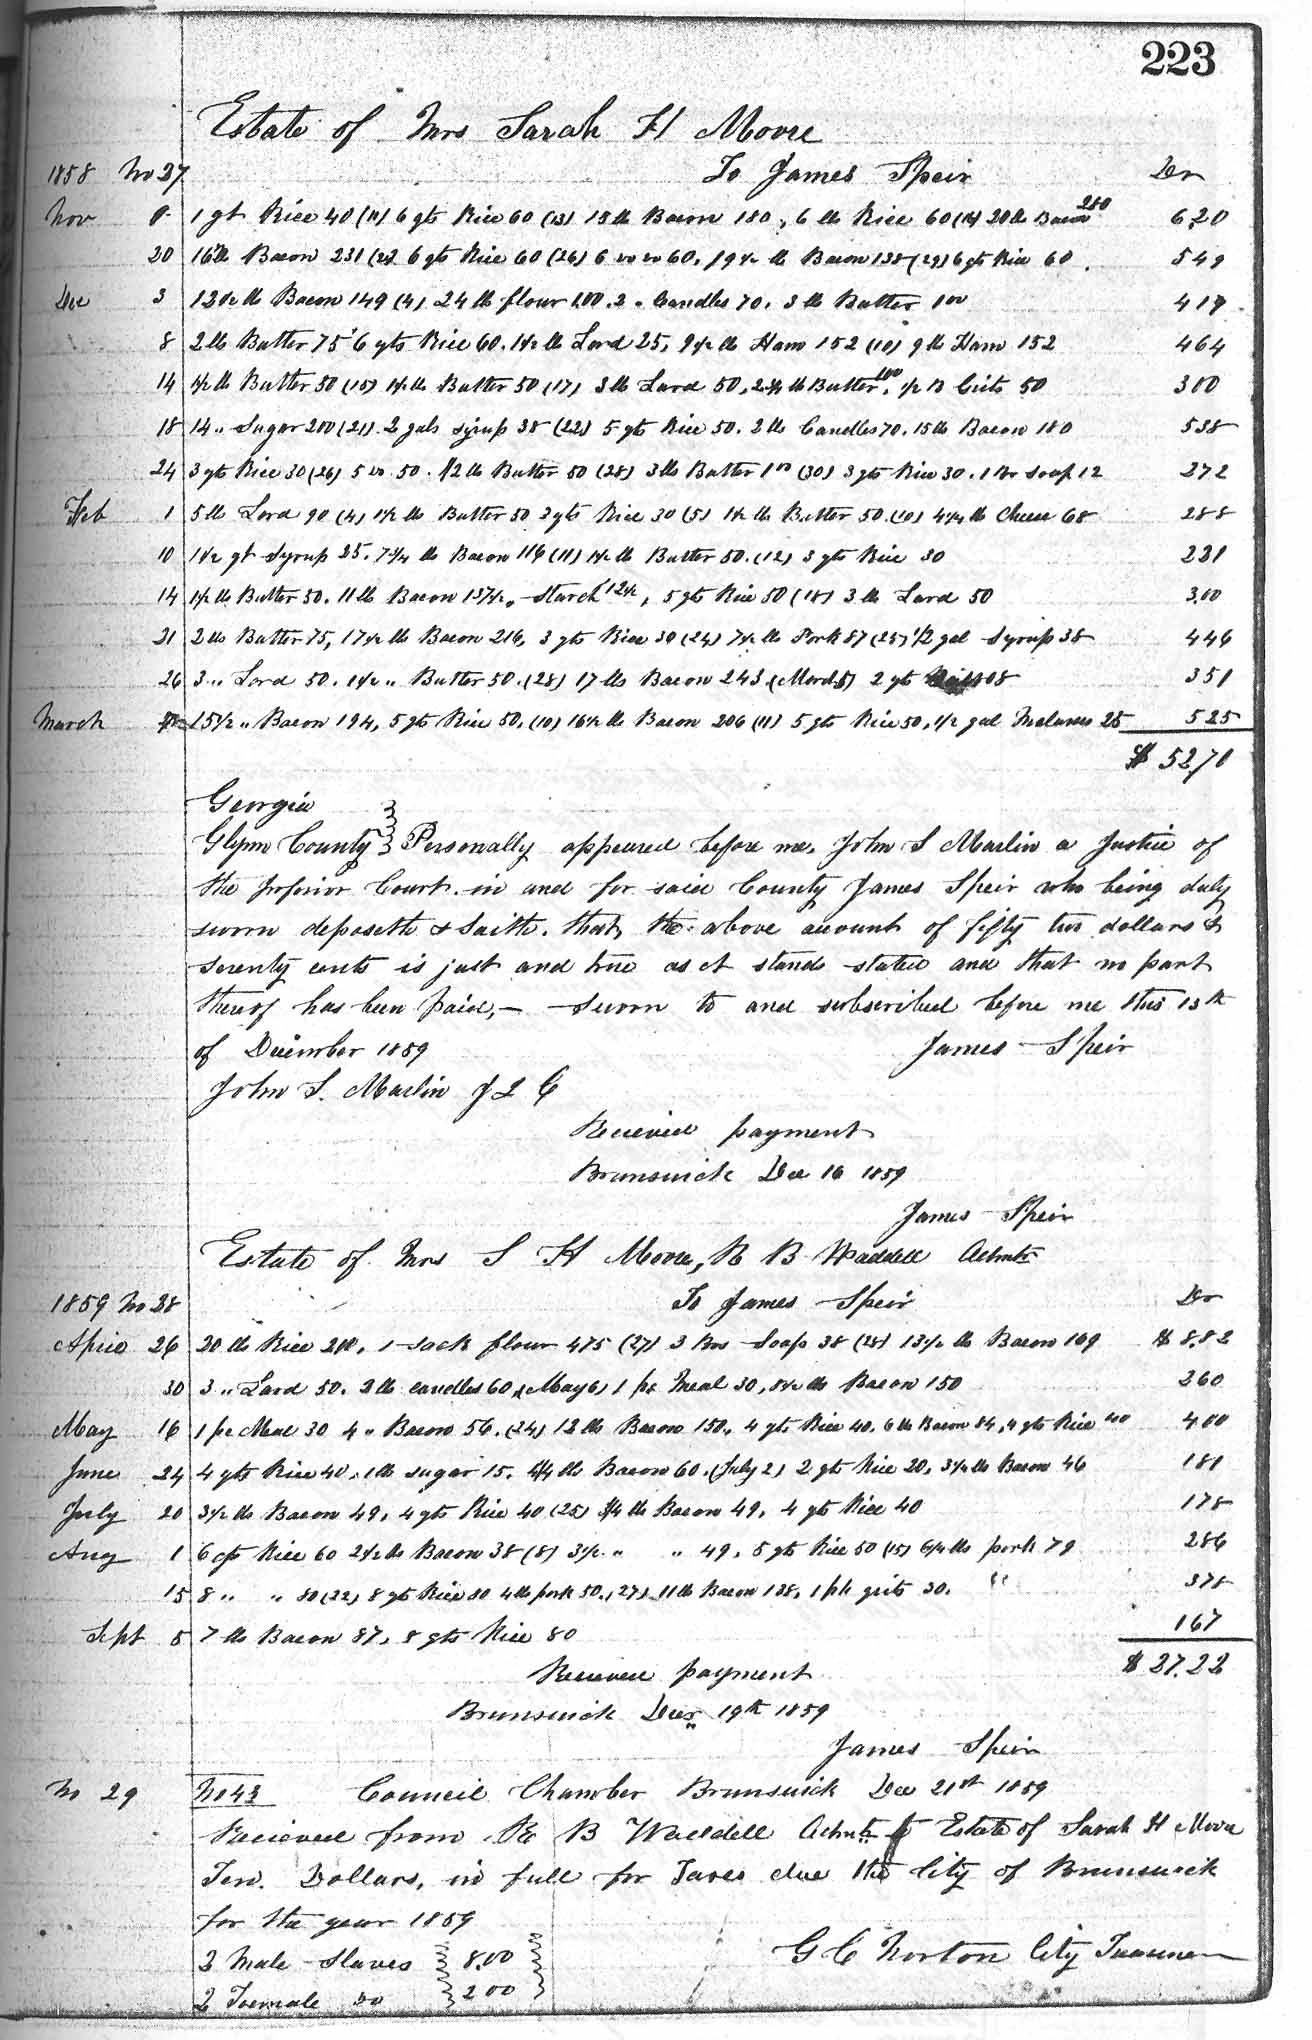 223
Estate of Mrs Sarah H Moore
1858 No 27 To James Speir Dr
Nov 9 1 qt Rice 40 (11) 6 qts Rice 60 (13) 15 lb Bacon 180, 6 lb Rice 60 (14) 20 lb Bacon 280 6,20
20 16 lb Bacon 231 (23) 6 qts Rice 60 (26) 6 do do 60, 19 1/2 lb Bacon 138 (29) 6 qts Rice 60. 549
Dec 3 12 1/2 lb Bacon 149 (4) 24 lb flour 100. 2 " Candles 70. 3 lb Butter 100 419
8 2 lb Butter 75 6 qts Rice 60. 1 1/2 lb Lard 25, 9 1/2 lb Ham 152 (10) 9 lb Ham 152 464
14 1 1/2 lb Butter 50 (15) 1 1/2 lb Butter 50 (17) 3 lb Lard 50, 2 3/4 lb Butter 100, 1/2 B Grits 50 300
18 14 " Sugar 200 (21). 2 gals syrup 38 (22) 5 qts Rice 50. 2 lb Candles 70. 15 lb Bacon 180 538
24 3 qts Rice 30 (26) 5 do. 50. 1 1/2 lb Butter 50 (28) 3 lb Butter 100 (30) 3 qts Rice 30. 1 Br soap 12 272
Feb 1 5 lb Lard 90 (4) 1 1/2 lb Butter 50 3 qts Rice 30 (5) 1 1/2 lb Butter 50. (10) 4 1/4 lb Cheese 68 288
10 1 1/2 qt Syrup 25. 7 3/4 lb Bacon 116 (11) 1 1/2 lb Butter 50. (12) 3 qts Rice 30 221
14 1 1/2 lb Butter 50. 11 lb Bacon 137 1/2, Starch 12 1/2, 5 qts Rice 50 (18) 3 lb Lard 50 3.00
21 2 lb Butter 75, 17 1/2 lb Bacon 216, 3 qts Rice 30 (24) 7 1/2 lb Pork 87 (25) 1/2 gal Syrup 38 446
26 3 " Lard 50. 1 1/2 " Butter 50. (28) 17 lb Bacon 243 (March 5) 2 qt 08 351
March 15 1/2 " Bacon 194, 5 qts Rice 50, (10) 16 1/2 lb Bacon 206 (11) 5 qts Rice 50, 1/2 gal Molasses 25 525
$ 52,70
Georgia
Glynn County } Personally appeared before me, John S Maslin a Justice of
the Inferior Court. in and for said County James Speir who being duly
sworn deposeth & saith. that, the above account of fifty two dollars &
seventy cents is just and true as it stands stated and that no part
thereof has been paid, — Sworn to and subscribed before me this 13th
of December 1859 James Speir
John S. Maslin J I C
Recieved payment
Brunswick Dec 16 1859
James Speir
Estate of Mrs S H Moore, R B Waddell Admtr
1859 No 28 To James Speir Dr
April 26 20 lb Rice 200, 1 Sack flour 475 (27) 3 Brs Soap 38 (28) 13 1/2 lb Bacon 169 $ 8,82
30 3 " Lard 50. 3 lb candles 60 (May 6) 1 pk Meal 30, 8 1/2 lb Bacon 150 260
May 16 1 pk Meal 30 4 " Bacon 56. (24) 12 lb Bacon 150, 4 qts Rice 40. 6 lb Bacon 84, 4 qts Rice 40 4.00
June 24 4 qts Rice 40, 1 lb sugar 15. 4 1/4 lb Bacon 60. (July 2) 2 qts Rice 20, 3 1/2 lb Bacon 46 181
July 20 3 1/2 lb Bacon 49, 4 qts Rice 40 (25) 3/4 lb Bacon 49, 4 qts Rice 40 178
Aug 1 6 qts Rice 60 2 1/2 lb Bacon 38 (8) 3 1/2 " " 49, 5 qts Rice 50 (15) 6 1/4 lb pork 79 286
15 8 " " 80 (22) 8 qts Rice 80 4 lb pork 50. (27) 11 lb Bacon 138, 1 pk grits 30. " 378
Sept 5 7 lb Bacon 87, 8 qts Rice 80 167
Recieved payment $ 27.22
Brunswick Decr 19th 1859
James Speir
No 29 No 43 Council Chamber Brunswick Dec 21st 1859
Recieved from R B Waddell Admtr Estate of Sarah H Moore
Ten. Dollars, in full for Taxes due the City of Brunswick
for the year 1859
3 Male Slaves } 8.00 } G C Norton City Treasurer
2 Foemale do } 200 }